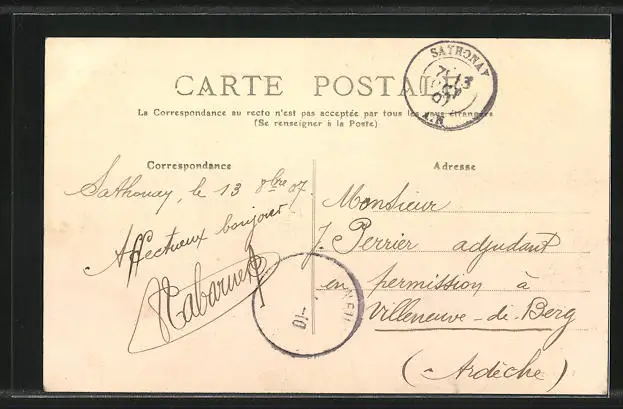 CARTE POSTALE
La Correspondance au recto n'est pas acceptée par tous les pays étrangers
(Se renseigner à la Poste)
SATHONAY
Correspondance
Sathonay, le 13 8bre 07.
Affectueux bonjour
Adresse
Monsieur
J. Perrier adjudant
en permission à
Villeneuve-de-Berg
(Ardèche)